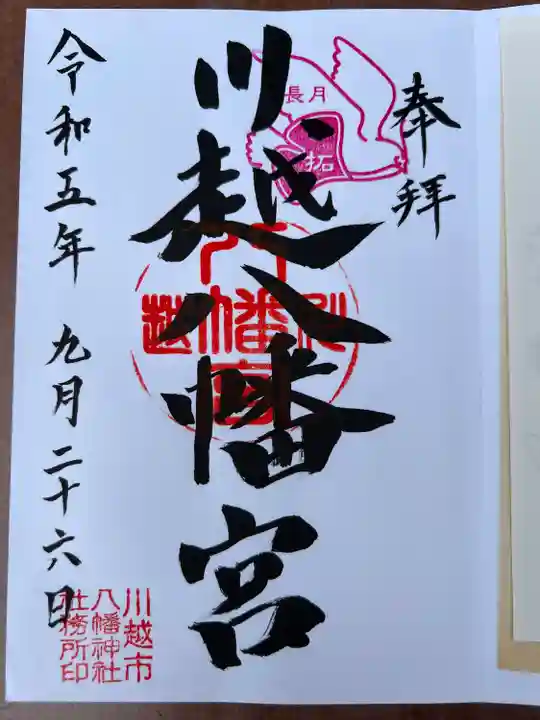 奉拝
長月
拓
川越八幡宮
川越
八幡宮
令和五年 九月二十六日
川越市
八幡神社
社務所印